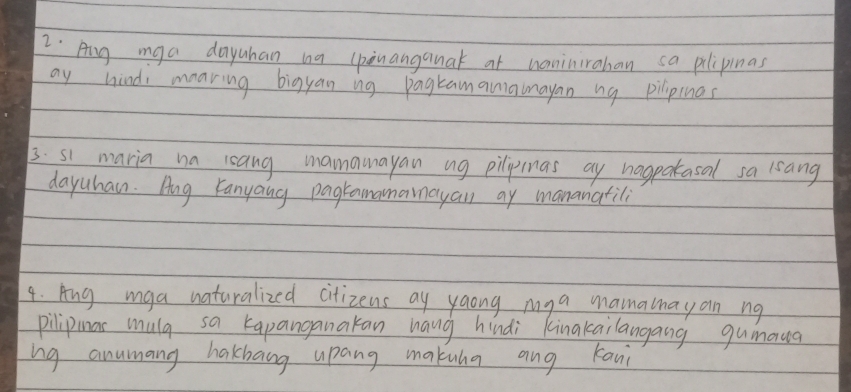 2. Ang mga dayuhan na ipinanganak at naninirahan sa pilipinas
ay hindi maaring bigyan ng pagkamamamayan ng pilipinas
3. si maria na isang mamamayan ng pilipinas ay nagpakasal sa isang
dayuhan. Ang kanyang pagkamamamayan ay mananatili
4. Ang mga naturalized citizens ay yaong mga mamamayan ng
pilipinas mula sa kapanganakan nang hindi kinakailangang gumawa
ng anumang hakbang upang makuha ang kani